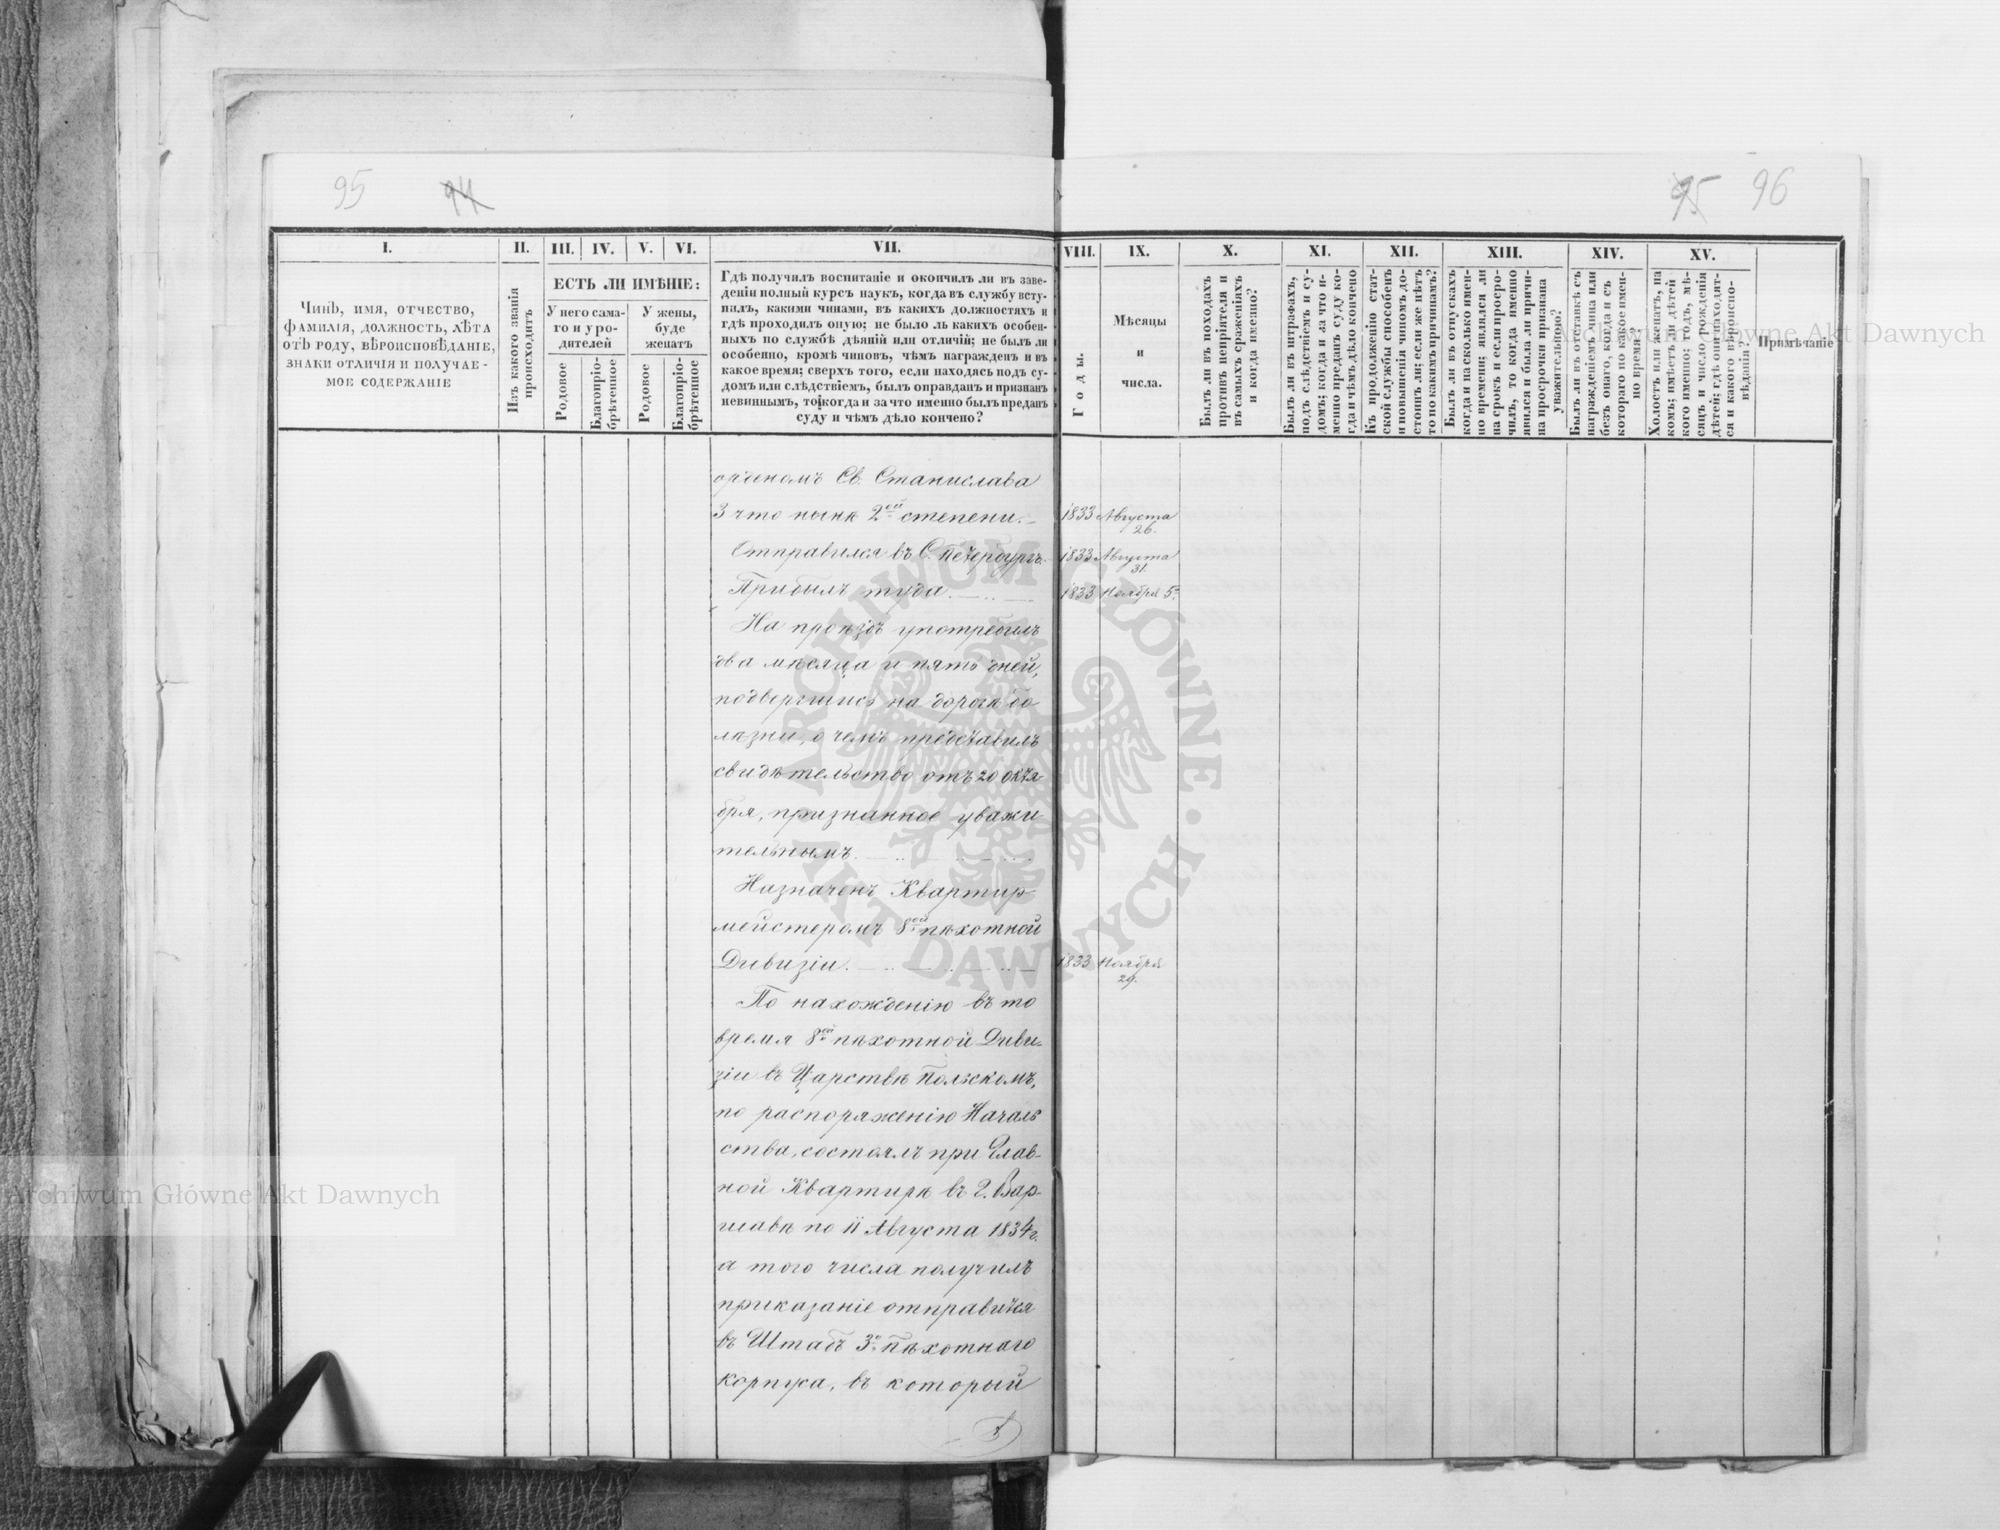 95 94
95 96
I.
II.
III.
IV.
V.
VI.
VII.
VIII.
IX.
X.
XI.
XII.
XIII.
XIV.
XV.
Чинъ, имя, отчество,
фамилія, должность, лѣта
отъ роду, вѣроисповѣданіе,
знаки отличія и получае-
мое содержаніе
Изъ какого званія
происходитъ
ЕСТЬ ЛИ ИМѢНІЕ:
У него сама-
го и у ро-
дителей
У жены,
буде
женатъ
Родовое
Благопріо-
брѣтенное
Родовое
Благопріо-
брѣтенное
Гдѣ получилъ воспитаніе и окончилъ ли въ заве-
деніи полный курсъ наукъ, когда въ службу всту-
пилъ, какими чинами, въ какихъ должностяхъ и
гдѣ проходилъ оную; не было ль какихъ особен-
ныхъ по службѣ дѣяній или отличій; не былъ ли
особенно, кромѣ чиновъ, чѣмъ награжденъ и въ
какое время; сверхъ того, если находясь подъ су-
домъ или слѣдствіемъ, былъ оправданъ и признанъ
невиннымъ, то когда и за что именно былъ преданъ
суду и чѣмъ дѣло кончено?
Годы.
Мѣсяцы
и
числа.
Былъ ли въ походахъ
противъ непріятеля и
въ самыхъ сраженіяхъ
и когда именно?
Былъ ли въ штрафахъ,
подъ слѣдствіемъ и су-
домъ; когда и за что и-
менно преданъ суду ко-
гда и чѣмъ дѣло кончено
Къ продолженію стат-
ской службы способенъ
и повышенія чиномъ до-
стоинъ ли; если же нѣтъ
то по какимъ причинамъ?
Былъ ли въ отпускахъ
когда и на сколько имен-
но времени; явился ли
на срокъ и если просро-
чилъ, то когда именно
явился и была ли причи-
на просрочки признана
уважительною?
Былъ ли въ отставкѣ съ
награжденіемъ чина или
безъ онаго, когда и съ
котораго по какое имен-
но время?
Холостъ или женатъ, на
комъ; имѣетъ ли дѣтей
кого именно; годъ, мѣ-
сяцъ и число рожденія
дѣтей; гдѣ они находят-
ся и какого вѣроиспо-
вѣданія?
Примѣчаніе
орденомъ Св. Станислава
3 что нынѣ 2ой степени. 1833 Августа 26.
Отправился въ С. Петербургъ. 1833 Августа 31.
Прибылъ туда 1833 Ноября 5го
На проѣздъ употребилъ
два мѣсяца и пять дней,
подвергшись на дорогѣ бо
лѣзни, о чемъ представилъ
свидѣтельство отъ 20 октя-
бря, признанное уважи
тельнымъ.
Назначенъ Квартир-
мейстеромъ 8ой пѣхотной
Дивизіи. 1833 Ноября 29.
По нахожденію въ то
время 8ой пѣхотной Диви-
зіи въ Царствѣ Польскомъ,
по распоряженію Началь
ства, состоялъ при Глав-
ной Квартирѣ въ Г. Вар-
шавѣ по 11 Августа 1834г.
а того числа получилъ
приказаніе отправится
въ Штабъ 3го Пѣхотнаго
корпуса, въ который
ARCHIWUM GŁÓWNE · AKT DAWNYCH ·
Archiwum Główne Akt Dawnych
Archiwum Główne Akt Dawnych